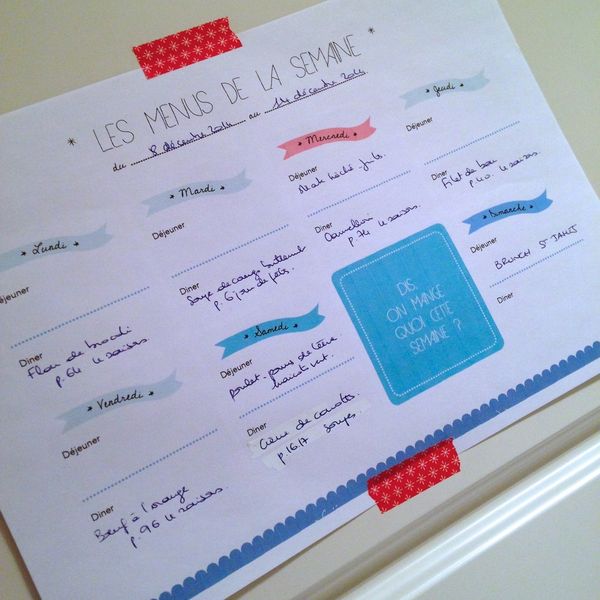 * LES MENUS DE LA SEMAINE *
du 8 décembre 2014 au 14 décembre 2014
* Lundi *
Déjeuner
Diner
Flan de brocoli
p. 64 4 saisons.
* Mardi *
Déjeuner
Diner
Soupe de courge butternut
p. 6
* Mercredi *
Déjeuner
Steak haché
Diner
p. 74 4 saisons.
* Jeudi *
Déjeuner
Diner
Filet de
p. 40 4 saisons.
* Vendredi *
Déjeuner
Diner
Boeuf à l'orange
p. 96 4 saisons
* Samedi *
Déjeuner
poulet - pommes de terre
haricot vert.
Diner
Crème de carottes
p. 167 soupes
* Dimanche *
Déjeuner
BRUNCH ST JAMES
Diner
DIS,
ON MANGE
QUOI CETTE
SEMAINE ?